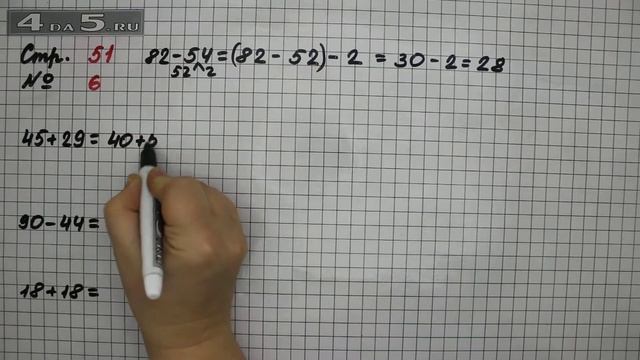 4DA5.RU
Стр. 51 82-54=(82-52)-2 = 30-2=28
52 2
№ 6
45+29= 40+5
90-44=
18+18=